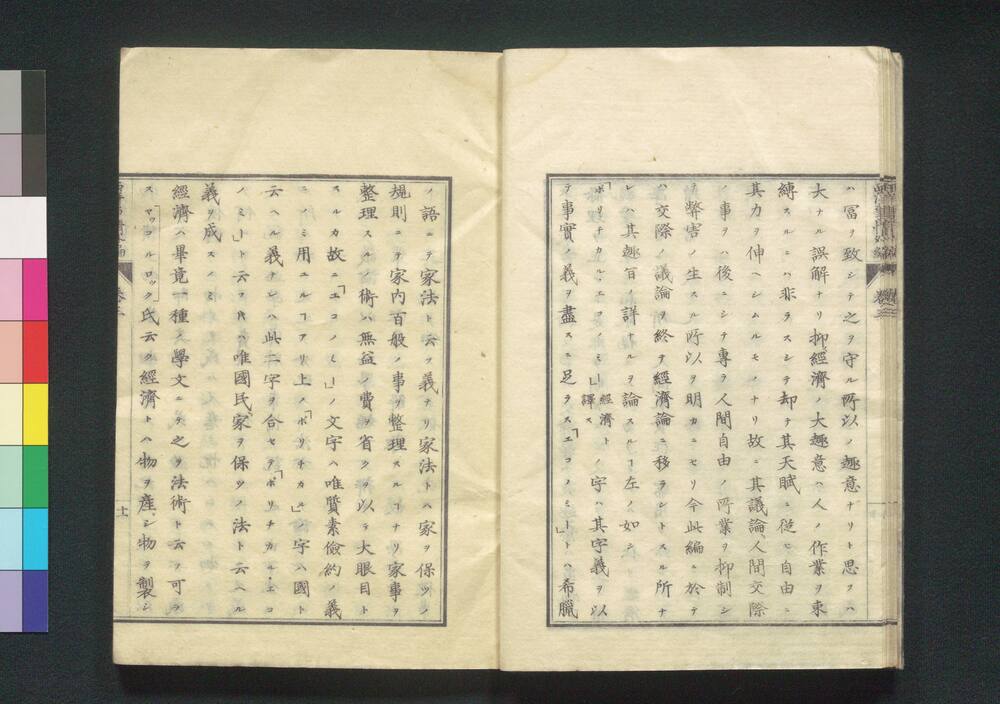 ハ富ヲ致シテ之ヲ守ル所以ノ趣意ナリト思フハ
大ナル誤解ナリ抑經濟ノ大趣意ハ人ノ作業ヲ束
縛スルニハ非ラスシテ却テ其天賦ニ從ヒ自由ニ
其力ヲ伸ヘシムルモノナリ故ニ其議論人間交際
ノ事ヲハ後ニシテ專ラ人間自由ノ所業ヲ抑制シ
テ弊害ノ生スル所以ヲ明カニセリ今此編ニ於テ
ハ交際ノ議論ヲ終テ經濟論ニ移ラントスル所ナ
レハ其趣旨ノ詳ナルヲ論スルヿ左ノ如シ
「ポリチカル、エコノミー」經濟ト譯スノ字ハ其字義ヲ以
テ事實ノ義ヲ盡スニ足ラス「エコノミー」トハ希臘
ノ語ニテ家法ト云フ義ナリ家法トハ家ヲ保ツノ
規則ニテ家内百般ノ事ヲ整理スルヿナリ家事ヲ
整理スルノ術ハ無益ノ費ヲ省クヲ以テ大眼目ト
スルカ故ニ「エコノミー」ノ文字ハ唯質素儉約ノ義
ニノミ用ユルヿアリ上ノ「ポリチカル」ノ字ハ國ト
云ヘル義ナレハ此二字ヲ合セテ「ポリチカル・エコ
ノミー」ト云フトキハ唯國民家ヲ保ツノ法ト云ヘル
義ヲ成スノミ
經濟ハ畢竟一種ノ學文ニテ之ヲ法術ト云フ可ラ
ス「マッコルロック」氏云ク經濟トハ物ヲ産シ物ヲ製シ
卷三